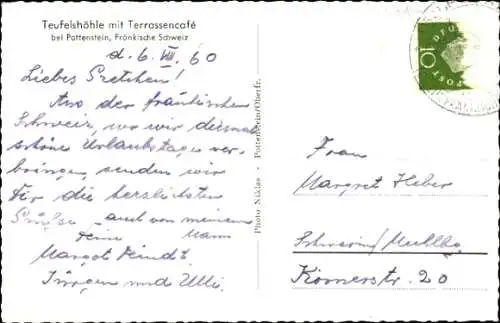 Teufelshöhle mit Terrassencafé
bei Pottenstein, Fränkische Schweiz
d. 6. VIII. 60
Liebes Gretchen!
Aus der fränkischen
Schweiz, wo wir diesmal
schöne Urlaubstage ver-
bringen, senden wir
Dir die herzlichsten
Grüße - auch von meinem
Mann
Deine
Margot
Jürgen und Ulli.
Photo Niklas - Pottenstein/Oberfr.
10
DEUTSCHE
POST
Frau
Margret Heber
Schwerin/Mecklbg
Körnerstr. 20